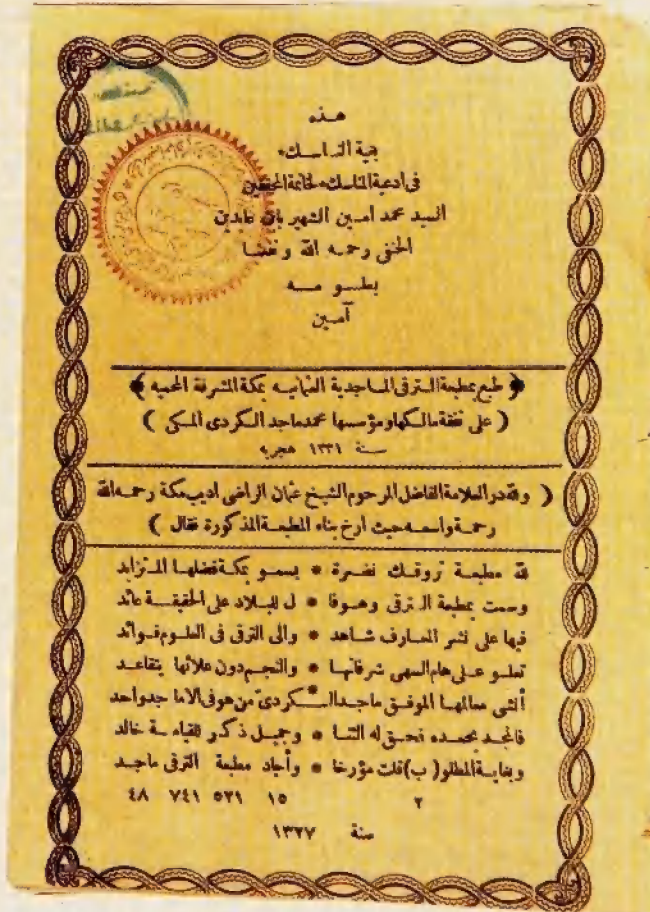 هـذه
بغية الناسك
فى ادعية المناسك لخاتمة المحققين
السيد محمد امـين الشهير بابن عابدين
الحنفى رحمـه الله ونفعنـا
بعلـــومـــه
آمـين
﴿ طبع بمطبعة الـترقى المـاجدية العثمانيـه بمكة المشرفة المحميه ﴾
( على نفقة مالـكها ومؤسسها محمد ماجد الـكردى المـكى )
سـنة ١٣٣١ هجريه
( ولله در العلامة الفاضل المرحوم الشيخ عثمان الراضى اديب مكة رحمـه الله
رحمـة واسعـه حيث ارخ بناء المطبعـة المذكورة فقال )
لله مطبعـة تروقـك نضـرة * يسمـو بمكـة فضلهـا المـتزايد
وسمت بمطبعة الـترقى وهـو فا * ل للبـلاد على الحقيقـــة عائد
فيها على نشر المعـارف شـاهد * والى الترقى فى العلـوم فـوائد
تعلـو عـلى هام السهى شرفاتهـا * والنجـم دون علائها يتقاعـد
أنشى معالمهـا الموفـق ماجـد الـــكردىّ من هو فى الاماجد واحد
فالمجـد يحمـده فحـق له الثنـا * وجميـل ذكـر للقيامـة خالد
وبغايـة المطلو ( ب ) قلت مؤرخا * وأجاد مطبعـة الترقى ماجـد
٢ ١٥ ٥٢١ ٧٤١ ٤٨
سنة ١٣٢٧